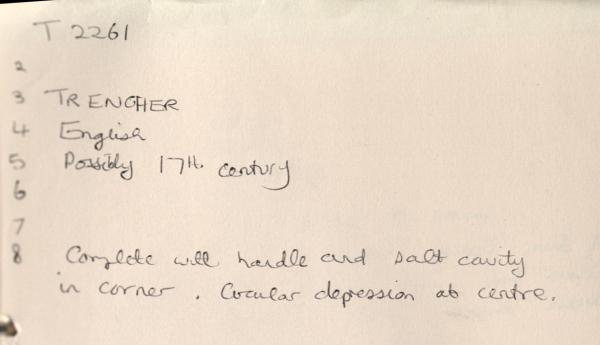 T 2261
2
3 TRENCHER
4 English
5 Possibly 17th. century
6
7
8 Complete with handle and salt cavity
in corner. Circular depression at centre.